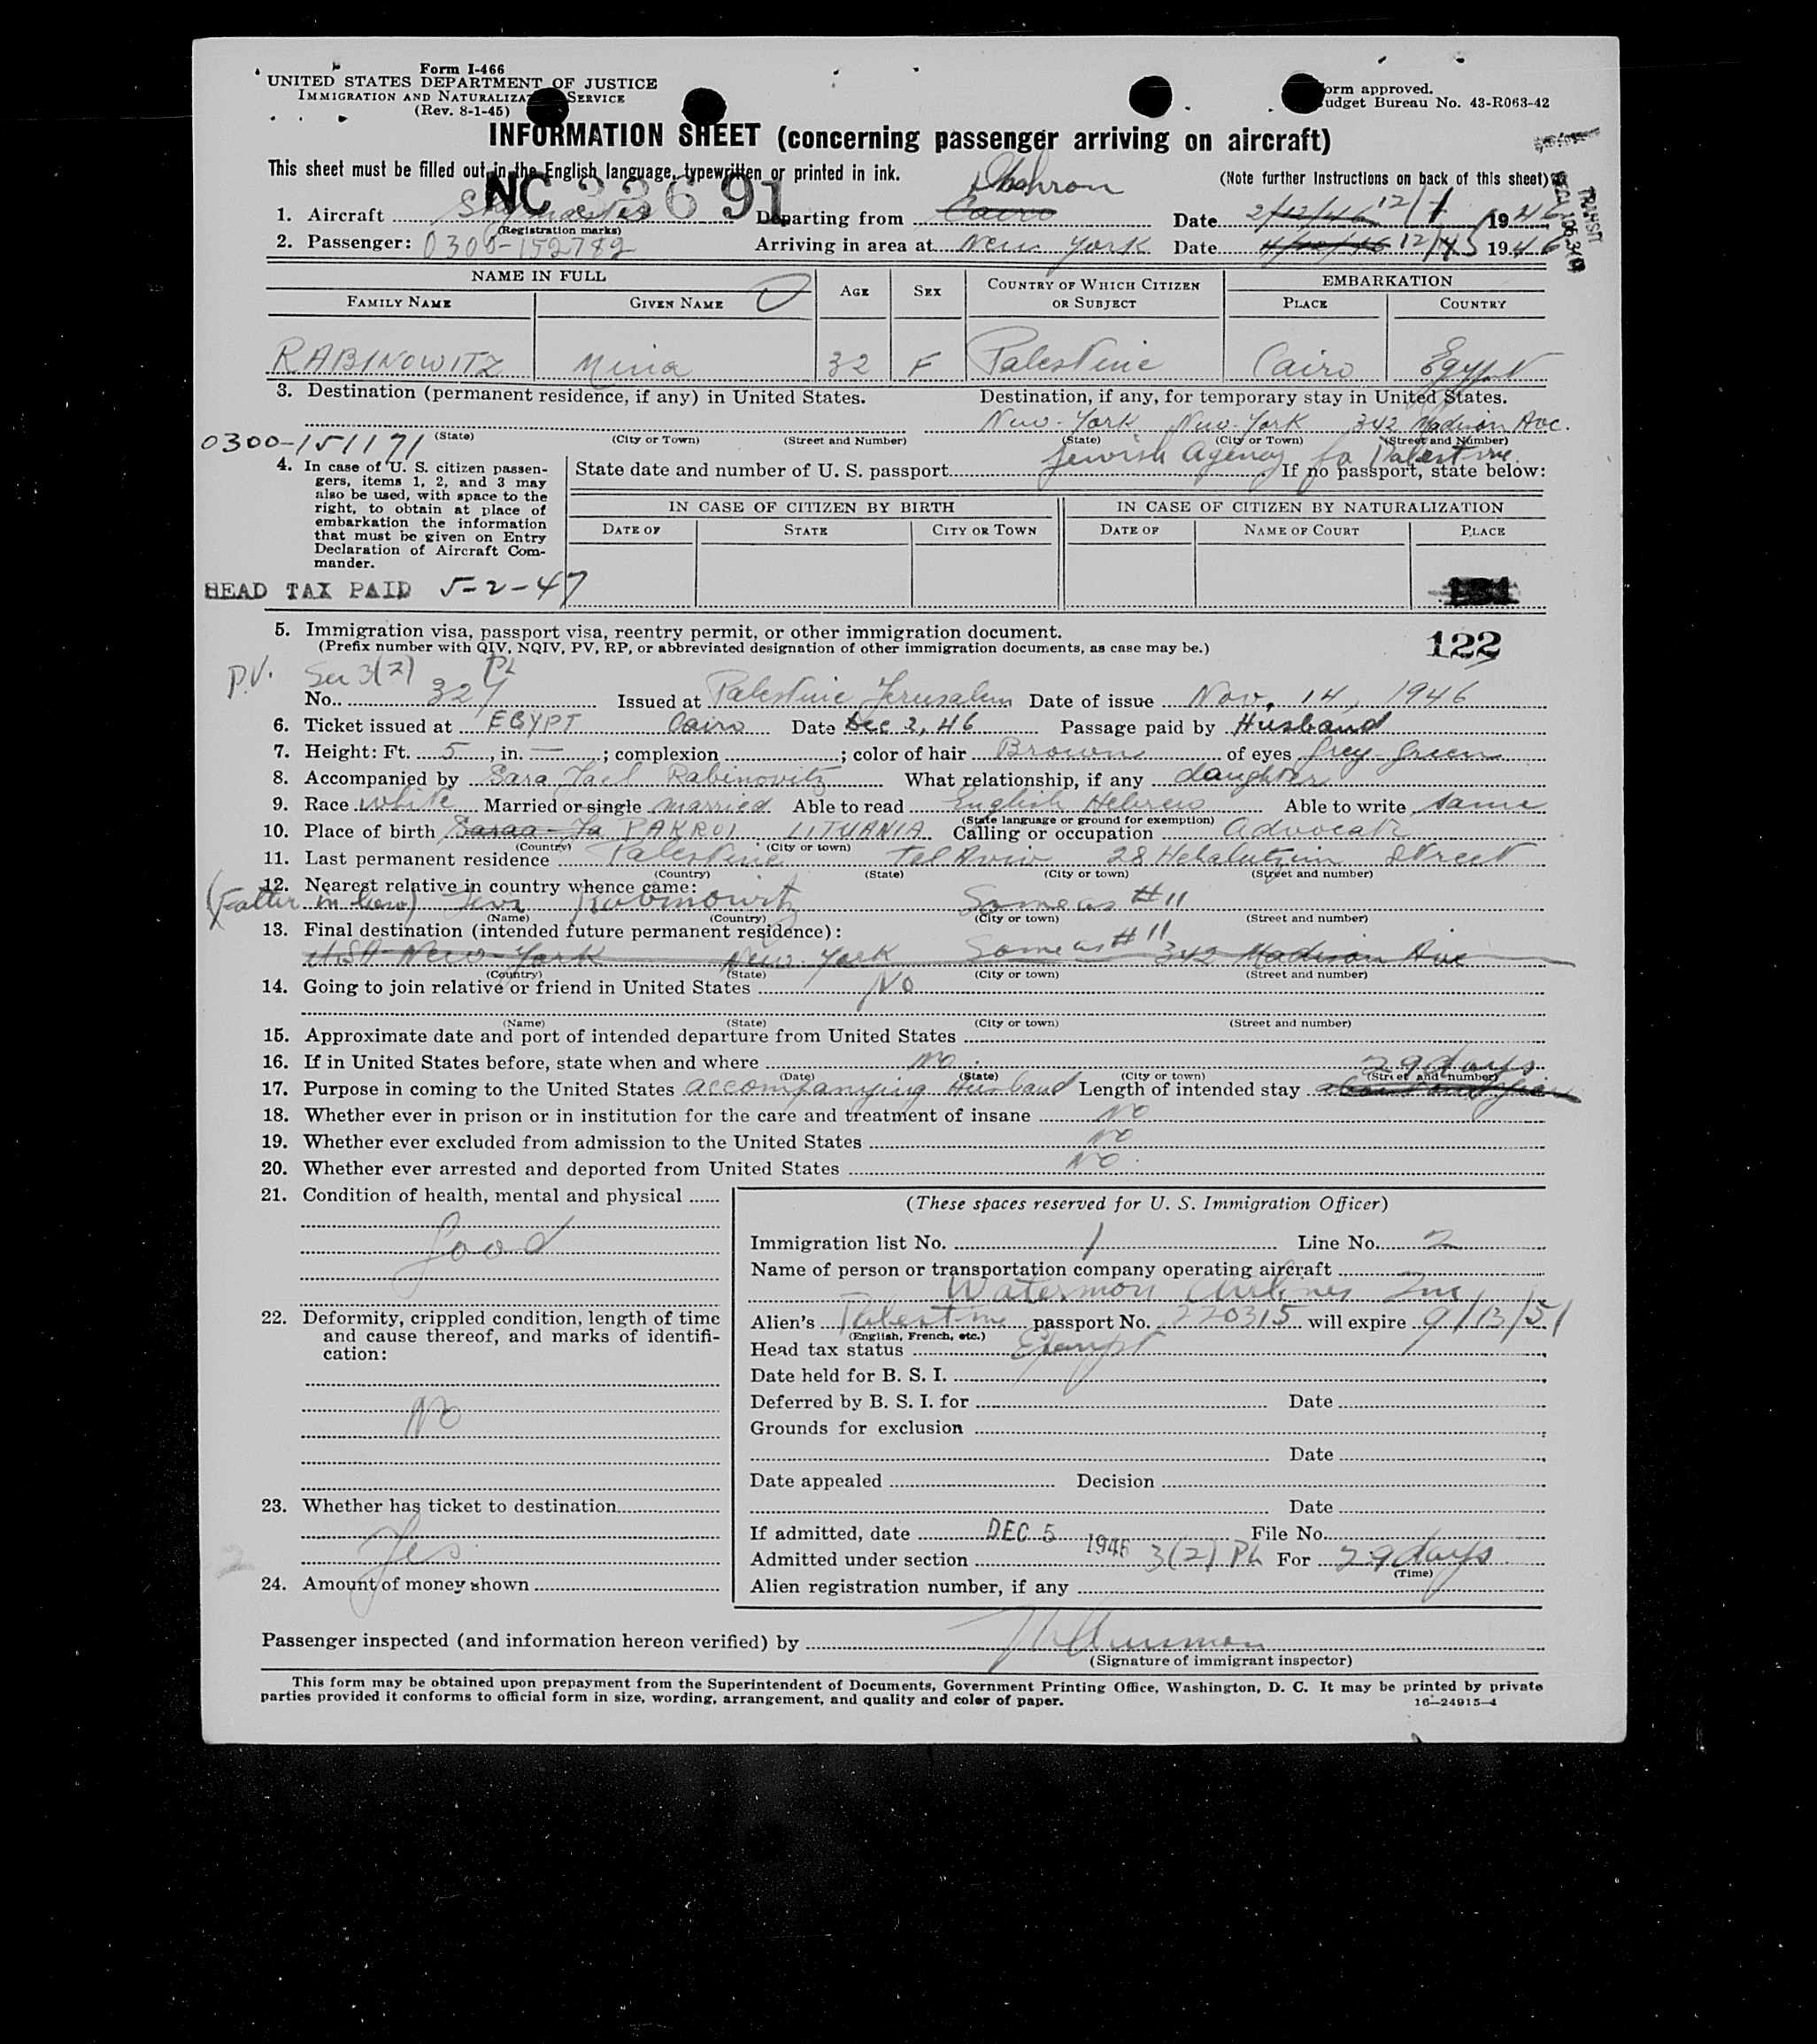 Form I-466
UNITED STATES DEPARTMENT OF JUSTICE
IMMIGRATION AND NATURALIZA SERVICE
(Rev. 8-1-45)
orm approved.
udget Bureau No. 43-R063-42
INFORMATION SHEET (concerning passenger arriving on aircraft)
This sheet must be filled out in the English language, typewritten or printed in ink.
(Note further instructions on back of this sheet)
TRANSIT
NC 23691
Dhahran
1. Aircraft Skymaster Departing from Cairo Date 2/12/46 12/1 1946
(Registration marks)
2. Passenger: 0300-152782 Arriving in area at New York Date 12/5 1946
NAME IN FULL
FAMILY NAME GIVEN NAME AGE SEX COUNTRY OF WHICH CITIZEN OR SUBJECT EMBARKATION PLACE COUNTRY
RABINOWITZ Nina 32 F Palestine Cairo Egypt
3. Destination (permanent residence, if any) in United States. Destination, if any, for temporary stay in United States.
New-York New-York 342 Madison Ave.
(State) (City or Town) (Street and Number) (State) (City or Town) (Street and Number)
0300-151171
Jewish Agency fo Palestine
4. In case of U. S. citizen passen-
gers, items 1, 2, and 3 may
also be used, with space to the
right, to obtain at place of
embarkation the information
that must be given on Entry
Declaration of Aircraft Com-
mander.
State date and number of U. S. passport If no passport, state below:
IN CASE OF CITIZEN BY BIRTH IN CASE OF CITIZEN BY NATURALIZATION
DATE OF STATE CITY OR TOWN DATE OF NAME OF COURT PLACE
HEAD TAX PAID 5-2-47
5. Immigration visa, passport visa, reentry permit, or other immigration document.
(Prefix number with QIV, NQIV, PV, RP, or abbreviated designation of other immigration documents, as case may be.)
122
P.V. Sec 3(2) PL
No. 327 Issued at Palestine Jerusalem Date of issue Nov. 14, 1946
6. Ticket issued at EGYPT Cairo Date Dec 2, 46 Passage paid by Husband
7. Height: Ft. 5, in. — ; complexion ; color of hair Brown of eyes grey-green
8. Accompanied by Sara Jael Rabinowitz What relationship, if any daughter
9. Race white Married or single married Able to read English Hebrew Able to write same
(State language or ground for exemption)
10. Place of birth PAKROI LITUANIA Calling or occupation Advocate
(Country) (City or town)
11. Last permanent residence Palestine Tel Aviv 28 Hehalutzim Street
(Country) (State) (City or town) (Street and number)
12. Nearest relative in country whence came:
(Father in law) Rabinowitz Same as #11
(Name) (Country) (City or town) (Street and number)
13. Final destination (intended future permanent residence):
USA New-York New-York Same as #11 342 Madison Ave
(Country) (State) (City or town) (Street and number)
14. Going to join relative or friend in United States No
(Name) (State) (City or town) (Street and number)
15. Approximate date and port of intended departure from United States
16. If in United States before, state when and where No
(Date) (State) (City or town) (Street and number)
29 days
17. Purpose in coming to the United States accompanying Husband Length of intended stay
18. Whether ever in prison or in institution for the care and treatment of insane No
19. Whether ever excluded from admission to the United States No
20. Whether ever arrested and deported from United States No
21. Condition of health, mental and physical
Good
22. Deformity, crippled condition, length of time
and cause thereof, and marks of identifi-
cation:
No
23. Whether has ticket to destination
Yes
24. Amount of money shown
(These spaces reserved for U. S. Immigration Officer)
Immigration list No. 1 Line No. 2
Name of person or transportation company operating aircraft
Waterman Airlines Inc
Alien's Palestine passport No. 220315 will expire 9/13/51
(English, French, etc.)
Head tax status Exempt
Date held for B. S. I.
Deferred by B. S. I. for Date
Grounds for exclusion
Date
Date appealed Decision
Date
If admitted, date DEC 5 1946 File No.
Admitted under section 3(2) PL For 29 days
(Time)
Alien registration number, if any
Passenger inspected (and information hereon verified) by
(Signature of immigrant inspector)
This form may be obtained upon prepayment from the Superintendent of Documents, Government Printing Office, Washington, D. C. It may be printed by private
parties provided it conforms to official form in size, wording, arrangement, and quality and color of paper.
16—24915-4